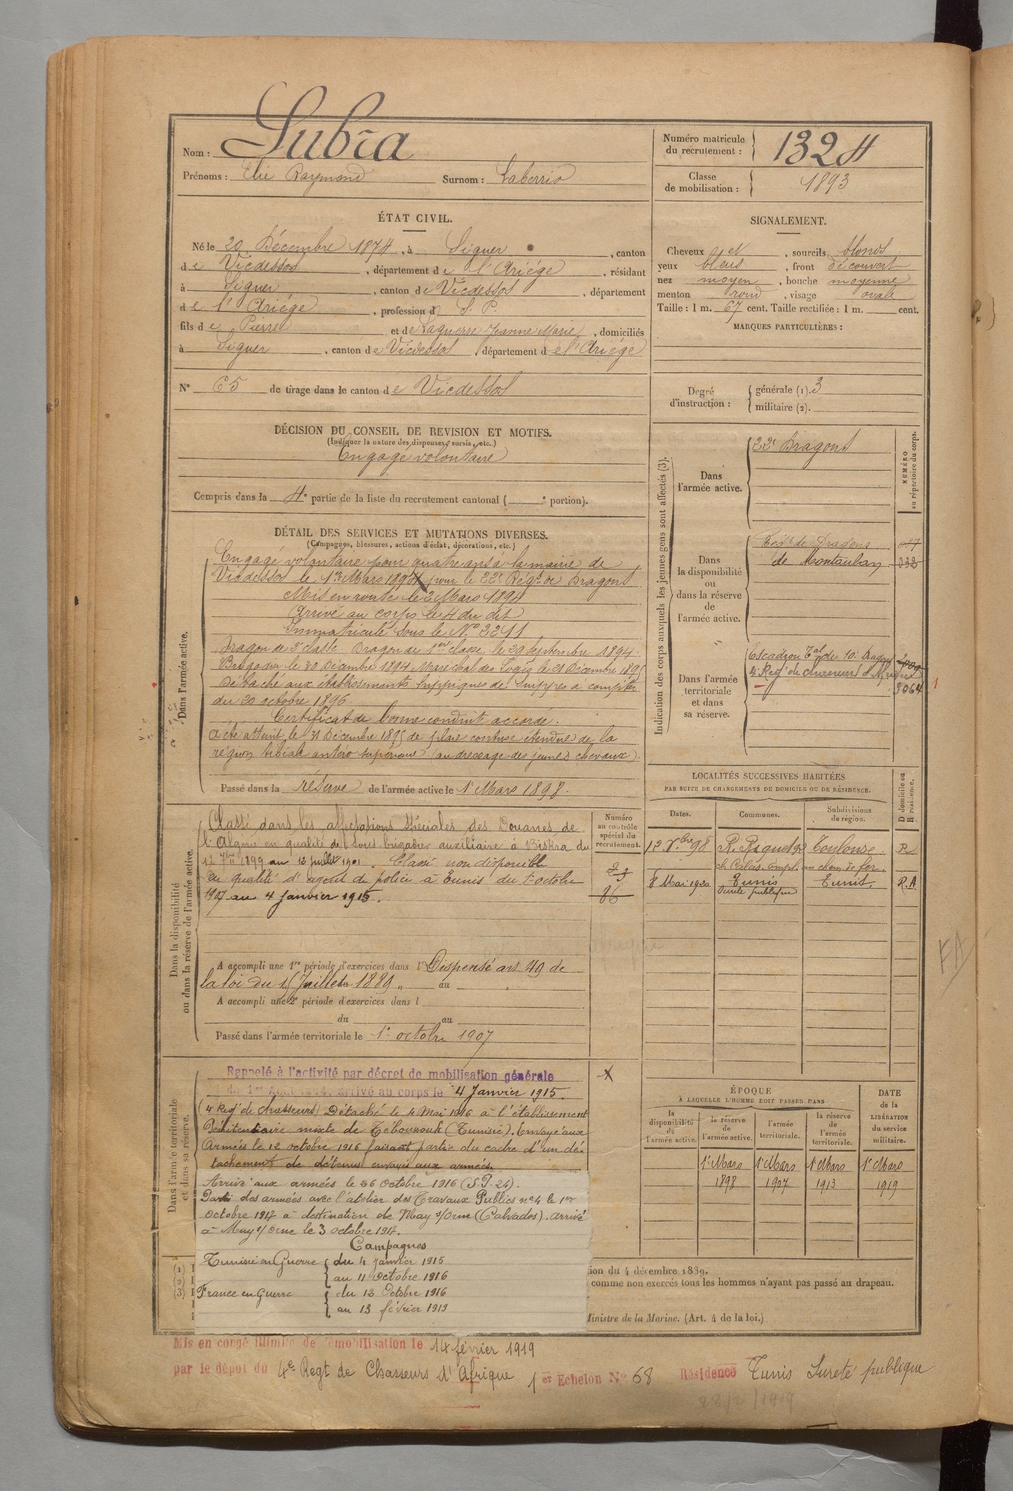 Nom : Lubra
Prénoms : Elie Raymond Surnom : Laborrio
Numéro matricule du recrutement : 1324
Classe de mobilisation : 1893
ÉTAT CIVIL.
Né le 29 Décembre 1874, à Siguer, canton
de Vicdessos, département de l'Ariége, résidant
à Siguer, canton de Vicdessos, département
de l'Ariége, profession d S. P.
fils de Pierre et de Laguerre Jeanne Marie, domiciliés
à Siguer, canton de Vicdessos, département de l'Ariége
N° 65 de tirage dans le canton de Vicdessos
SIGNALEMENT.
Cheveux et, sourcils blonds
yeux bleus, front découvert
nez moyen, bouche moyenne
menton rond, visage ovale
Taille : 1 m. 67 cent. Taille rectifiée : 1 m. cent.
MARQUES PARTICULIÈRES :
DÉCISION DU CONSEIL DE REVISION ET MOTIFS.
(Indiquer la nature des dispenses, sursis, etc.)
Engagé volontaire
Compris dans la 4e partie de la liste du recrutement cantonal ( e portion).
Degré d'instruction : générale (1). 3
militaire (2).
DÉTAIL DES SERVICES ET MUTATIONS DIVERSES.
(Campagnes, blessures, actions d'éclat, décorations, etc.)
Dans l'armée active.
Engagé volontaire pour quatre ans à la mairie de
Vicdessos le 1er Mars 1894 pour le 22e Régt de Dragons
Mis en route le 2 Mars 1894
Arrivé au corps le 4 du dit
Immatriculé sous le No 3241
Dragon de 2e classe. Dragon de 1ere classe le 29 Septembre 1894.
Brigadier le 20 Décembre 1894. Maréchal des Logis le 21 Décembre 1895
Détaché aux établissements hippiques de Suippes à compter
du 20 octobre 1896
Certificat de bonne conduite accordé.
A été atteint, le 31 Décembre 1895 de plaie contuse étendue de la
région tibiale antéro supérieure (au dressage des jeunes chevaux)
Passé dans la réserve de l'armée active le 1er Mars 1898.
Indication des corps auxquels les jeunes gens sont affectés (3).
NUMÉRO au répertoire du corps.
Dans l'armée active.
22e Dragons
Dans la disponibilité ou dans la réserve de l'armée active.
de Dragons
de Montauban
Dans l'armée territoriale et dans sa réserve.
Escadron Tal de 10e Dragons
4e Regt de chasseurs d'Afrique
3064
LOCALITÉS SUCCESSIVES HABITÉES
PAR SUITE DE CHANGEMENTS DE DOMICILE OU DE RÉSIDENCE.
Dates. Communes. Subdivisions de région. D domicile ou R résidence.
Toulouse R
8 Mai 1920 Tunis Tunis R.A
Sureté publique
Dans la disponibilité ou dans la réserve de l'armée active.
Numéro au contrôle spécial du recrutement.
Classé dans les affectations Spéciales des Douanes de
l'Algérie en qualité de sous brigadier auxiliaire à Biskra du
12 1899 au 13 juillet 1901. Classé non disponible
en qualité d'agent de police à Tunis du 1er octobre
1907 au 4 Janvier 1915.
86
A accompli une 1re période d'exercices dans l Dispensé art. 49 de
la loi du 15 Juillet 1889 au
A accompli une 2e période d'exercices dans l
du au
Passé dans l'armée territoriale le 1er octobre 1907
Dans l'armée territoriale et dans sa réserve.
Rappelé à l'activité par décret de mobilisation générale
arrivé au corps le 4 Janvier 1915.
(4 Reg' de chasseurs) Détaché le 4 Mai 1916 à l'établissement
Pénitentiaire mixte de Téboursouk (Tunisie). Envoyé aux
Armées le 12 octobre 1916 faisant partie du cadre d'un dé-
tachement de détenus envoyés aux armées.
Arrivé aux armées le 26 octobre 1916 (S.P. 24).
Parti des armées avec l'atelier des Travaux Publics no 4 le 1er
Octobre 1917 à destination de May s/Orne (Calvados). Arrivé
à May s/Orne le 3 octobre 1917.
Campagnes
Tunisie en Guerre du 4 Janvier 1915
au 11 octobre 1916
France en Guerre du 12 Octobre 1916
au 13 février 1919
ÉPOQUE
À LAQUELLE L'HOMME DOIT PASSER DANS
la disponibilité de l'armée active. la réserve de l'armée active. l'armée territoriale. la réserve de l'armée territoriale. DATE de la LIBÉRATION du service militaire.
1er Mars 1898 1er Mars 1907 1er Mars 1913 1er Mars 1919
(1)
(2)
(3)
ion du 4 décembre 1889.
comme non exercés tous les hommes n'ayant pas passé au drapeau.
Ministre de la Marine. (Art. 4 de la loi.)
Mis en congé illimité de démobilisation le 14 février 1919
par le dépot du 4e Regt de Chasseurs d'Afrique 1er Echelon No 68 Résidence Tunis Sureté publique
FA